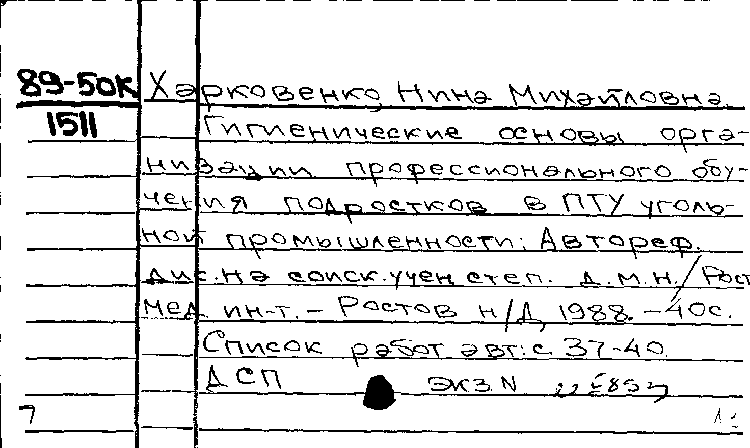 89-50к Харковенко, Нина Михайловна.
1511 Гигиенические основы орга-
низации профессионального обу-
чения подростков в ПТУ уголь-
ной промышленности: Автореф.
дис. на соиск. учен. степ. д.м.н./Рост
мед. ин-т. - Ростов н/Д, 1988. - 40с.
Список работ авт: с. 37-40.
ДСП экз N
7